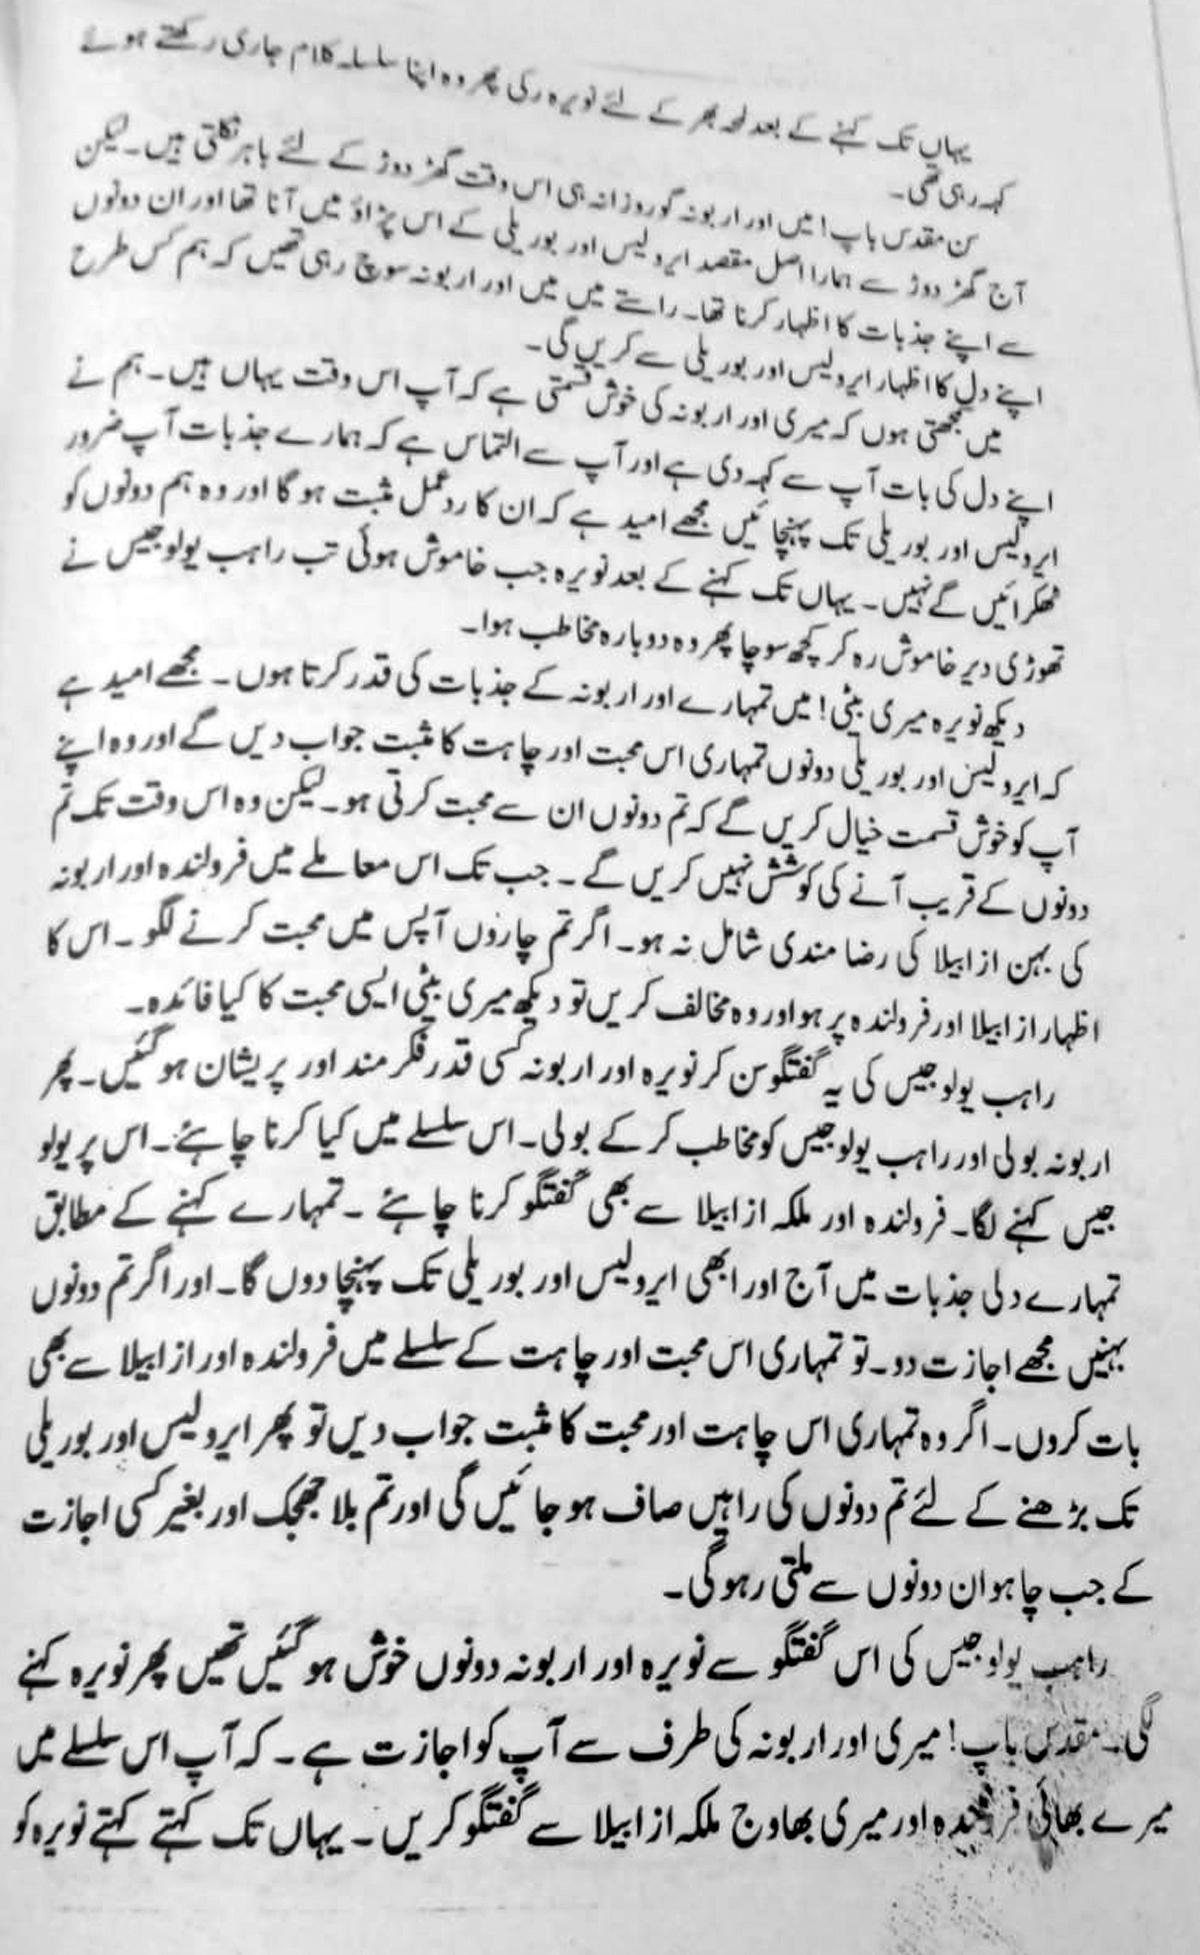 یہاں تک کہنے کے بعد لمحہ بھر کے لئے نویرہ رکی پھر وہ اپنا سلسلہ کلام جاری رکھتے ہوئے
کہہ رہی تھی۔
سن مقدس باپ! میں اور اربونہ گو روزانہ ہی اس وقت گھڑ دوڑ کے لئے باہر نکلتی ہیں۔ لیکن
آج گھڑ دوڑ سے ہمارا اصل مقصد ایرولیس اور بوریلی کے اس پڑاؤ میں آنا تھا اور ان دونوں
سے اپنے جذبات کا اظہار کرنا تھا۔ راستے میں میں اور اربونہ سوچ رہی تھیں کہ ہم کس طرح
اپنے دل کا اظہار ایرولیس اور بوریلی سے کریں گی۔
میں سمجھتی ہوں کہ میری اور اربونہ کی خوش قسمتی ہے کہ آپ اس وقت یہاں ہیں۔ ہم نے
اپنے دل کی بات آپ سے کہہ دی ہے اور آپ سے التماس ہے کہ ہمارے جذبات آپ ضرور
ایرولیس اور بوریلی تک پہنچائیں مجھے امید ہے کہ ان کا ردعمل مثبت ہو گا اور وہ ہم دونوں کو
ٹھکرائیں گے نہیں۔ یہاں تک کہنے کے بعد نویرہ جب خاموش ہوئی تب راہب یولوجیس نے
تھوڑی دیر خاموش رہ کر کچھ سوچا پھر وہ دوبارہ مخاطب ہوا۔
دیکھ نویرہ میری بیٹی! میں تمہارے اور اربونہ کے جذبات کی قدر کرتا ہوں۔ مجھے امید ہے
کہ ایرولیس اور بوریلی دونوں تمہاری اس محبت اور چاہت کا مثبت جواب دیں گے اور وہ اپنے
آپ کو خوش قسمت خیال کریں گے کہ تم دونوں ان سے محبت کرتی ہو۔ لیکن وہ اس وقت تک تم
دونوں کے قریب آنے کی کوشش نہیں کریں گے۔ جب تک اس معاملے میں فرولندہ اور اربونہ
کی بہن ازابیلا کی رضا مندی شامل نہ ہو۔ اگر تم چاروں آپس میں محبت کرنے لگو۔ اس کا
اظہار ازابیلا اور فرولندہ پر ہو اور وہ مخالف کریں تو دیکھ میری بیٹی ایسی محبت کا کیا فائدہ۔
راہب یولوجیس کی یہ گفتگو سن کر نویرہ اور اربونہ کسی قدر فکر مند اور پریشان ہو گئیں۔ پھر
اربونہ بولی اور راہب یولوجیس کو مخاطب کر کے بولی۔ اس سلسلے میں کیا کرنا چاہئے۔ اس پر یولو
جیس کہنے لگا۔ فرولندہ اور ملکہ ازابیلا سے بھی گفتگو کرنا چاہئے۔ تمہارے کہنے کے مطابق
تمہارے دلی جذبات میں آج اور ابھی ایرولیس اور بوریلی تک پہنچا دوں گا۔ اور اگر تم دونوں
بہنیں مجھے اجازت دو۔ تو تمہاری اس محبت اور چاہت کے سلسلے میں فرولندہ اور ازابیلا سے بھی
بات کروں۔ اگر وہ تمہاری اس چاہت اور محبت کا مثبت جواب دیں تو پھر ایرولیس اور بوریلی
تک بڑھنے کے لئے تم دونوں کی راہیں صاف ہو جائیں گی اور تم بلا جھجک اور بغیر کسی اجازت
کے جب چاہو ان دونوں سے ملتی رہو گی۔
راہب یولوجیس کی اس گفتگو سے نویرہ اور اربونہ دونوں خوش ہو گئیں تھیں پھر نویرہ کہنے
لگی۔ مقدس باپ! میری اور اربونہ کی طرف سے آپ کو اجازت ہے۔ کہ آپ اس سلسلے میں
میرے بھائی فرولندہ اور میری بھاوج ملکہ ازابیلا سے گفتگو کریں۔ یہاں تک کہتے کہتے نویرہ کو